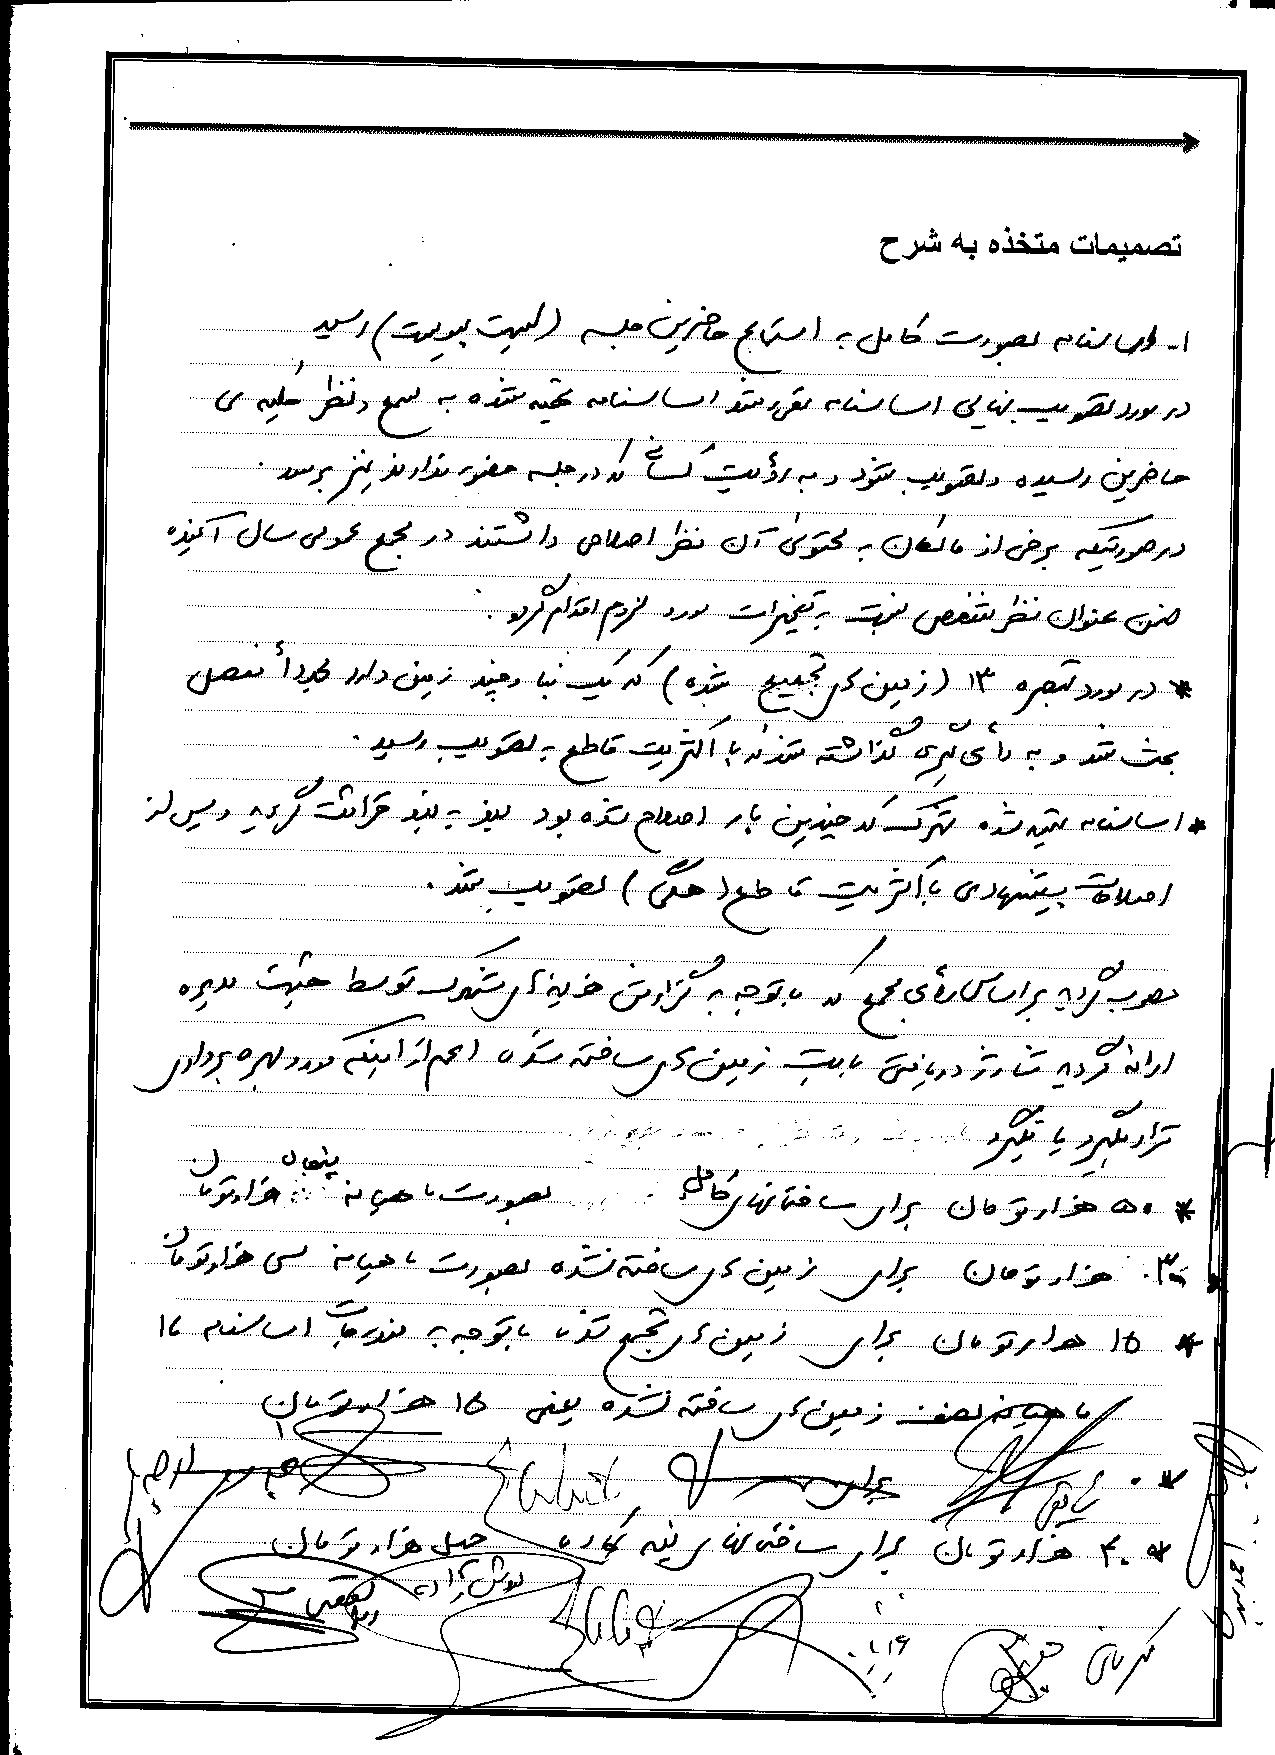 تصمیمات متخذه به شرح
۱- اساسنامه بصورت کامل به استماع حاضرین جلسه (پیوست) رسید
در مورد تصویب نهایی اساسنامه مقرر شد اساسنامه تهیه شده به سمع و نظر کلیه ی
حاضرین رسیده و تصویب شود و به رؤیت کسانی که در جلسه حضور ندارند نیز برسد.
در صورتیکه برخی از مالکان به محتوای آن نظر اصلاحی داشتند در مجمع عمومی سال آینده
ضمن عنوان نظر شخصی نسبت به تغییرات مورد لزوم اقدام گردد.
* در مورد تبصره ۱۳ (زمین های تجمیع شده) که یک بنا و چند زمین دارد مجدداً مفصل
بحث شد و به رأی گیری گذاشته شد که با اکثریت قاطع به تصویب رسید.
* اساسنامه تهیه شده شهرک که چندین بار اصلاح شده بود بند به بند قرائت گردید و پس از
اصلاحات پیشنهادی با اکثریت قاطع (همگی) تصویب شد.
مصوب گردید بر اساس رأی مجمع که با توجه به گزارش هزینه های شهرک توسط هیئت مدیره
ارائه گردید شارژ دریافتی بابت زمین های ساخته شده اعم از اینکه مورد بهره برداری
قرار بگیرد یا نگیرد
* ۵۰ هزار تومان برای ساختمانهای کامل بصورت ماهیانه پنجاه هزار تومان
* ۳۰ هزار تومان برای زمین های ساخته نشده بصورت ماهیانه سی هزار تومان
* ۱۵ هزار تومان برای زمین های تجمیع شده با توجه به مندرجات اساسنامه تا
ماهیانه نصف زمین های ساخته نشده یعنی ۱۵ هزار تومان
*
* ۴۰ هزار تومان برای ساختمانهای نیمه کاره چهل هزار تومان